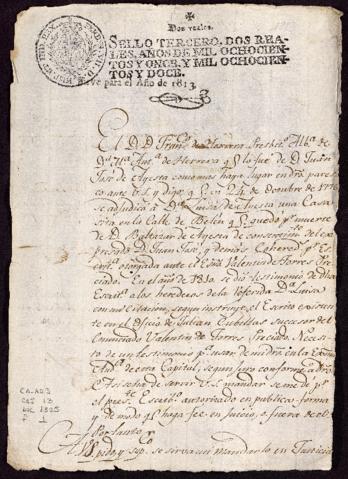 Dos reales.
SELLO TERCERO, DOS REA-
LES, AÑOS DE MIL OCHOCIEN-
TOS Y ONCE, Y MIL OCHOCIEN-
TOS Y DOCE.
para el Año de 1813
El D. D. Fran.co de Herrera Presb.o Alb.a de
D.a Ant.a de Herrera q.e lo fue de D. Juan
Jose de Ayesta como mas haya lugar en dro. pares-
co ante V.S. y digo q.e en 24 de Octubre de
se adjudicó a D.a Luisa de Ayesta una Casa
sita en la Calle de Belen q.e quedó p.r muerte
de D. Baltazar de Ayesta de
presado D. Juan Jose, y demas Cohered.s p.r Es-
crit.a otorgada ante el Esno. Valentin de Torres Pre-
ciado. En el año de 1810 se dió testimonio de dha
Escrit.a a los herederos de la referida D.a Luisa
con su Citacion, segun instruye el Escrito existen-
te en el Oficio de Julian Cubillas succesor del
enunciado Valentin de Torres Preciado. Necesi-
to de un testimonio p.a usar de mi dro. en la
Aud.a de esta Capital, segun
se ha de servir V.S. mandar se me de p.r
el pres.te Escrib.o autorizado en publica forma
y de modo q.e haga fee en Juicio, o fuera de el:
Por tanto
A V.S. pido, y sup.co se sirva mandarlo en Justicia
CA-AD3
CAJ 13
DOC 1825
F 1